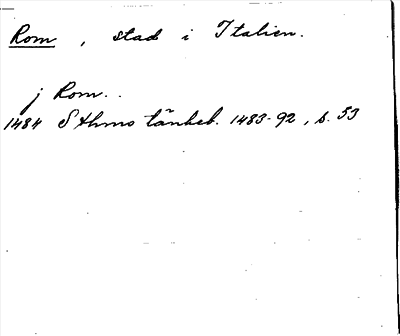 Rom, stad i Italien.
j Rom..
1484 Sthms tänkeb. 1483-92, s. 53